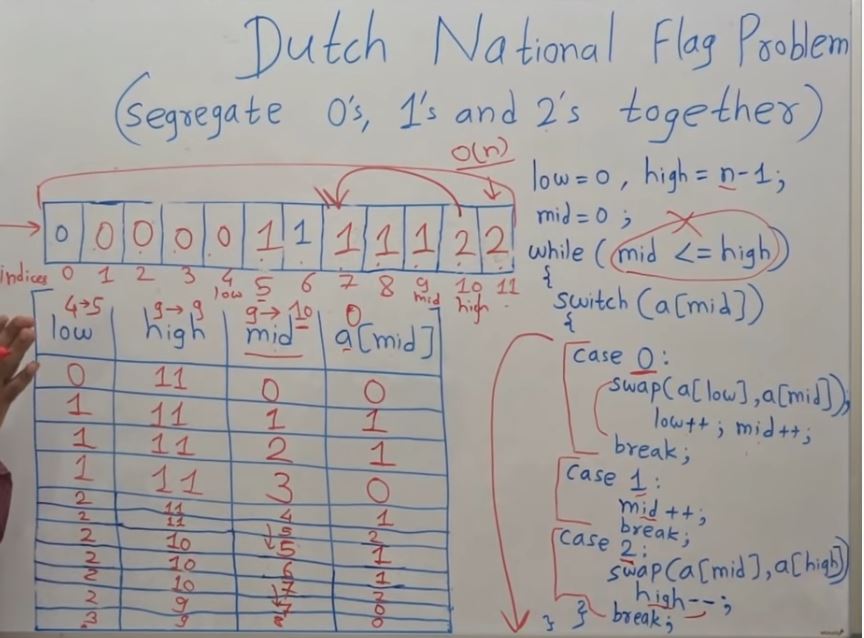 Dutch National Flag Problem
(segregate 0's, 1's and 2's together)
O(n)
0 0 0 0 0 1 1 1 1 1 2 2
indices 0 1 2 3 4 5 6 7 8 9 10 11
low mid high
4→5 9→9 9→10 0
low high mid a[mid]
0 11 0 0
1 11 1 1
1 11 2 1
1 11 3 0
2 11 4 1
2 11 5 2
2 10 5 1
2 10 6 1
2 10 7 2
2 9 7 0
3 9 8 0
low=0, high=n-1;
mid=0;
while (mid <= high)
{
switch (a[mid])
{
case 0:
swap(a[low],a[mid]);
low++; mid++;
break;
case 1:
mid++;
break;
case 2:
swap(a[mid],a[high])
high--;
} } break;